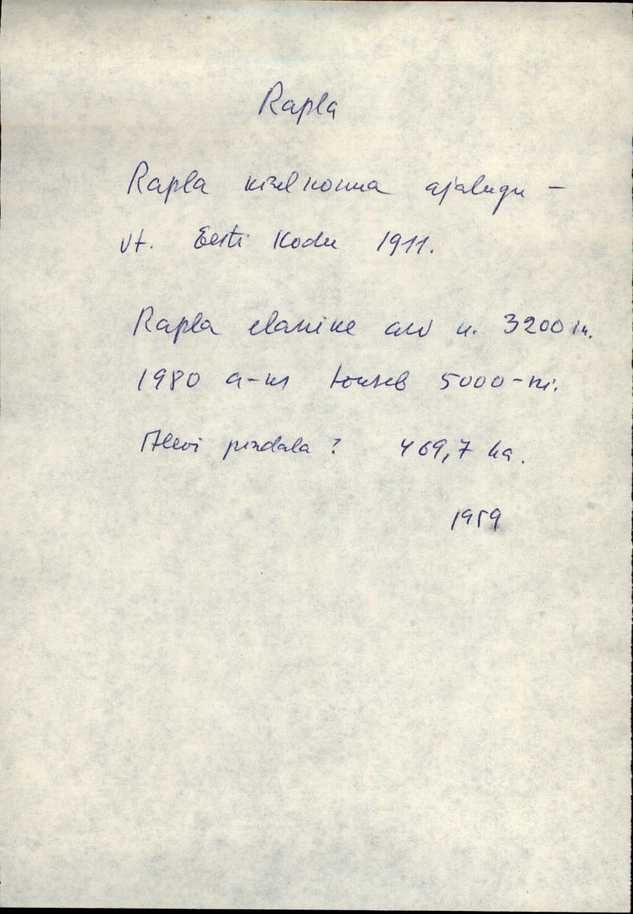 Rapla
Rapla kihelkonna ajalugu –
vt. Eesti Kodu 1911.
Rapla elanike arv u. 3200 in.
1980 a-ks tõuseb 5000-ni.
Alevi pindala? 469,7 ha.
1959